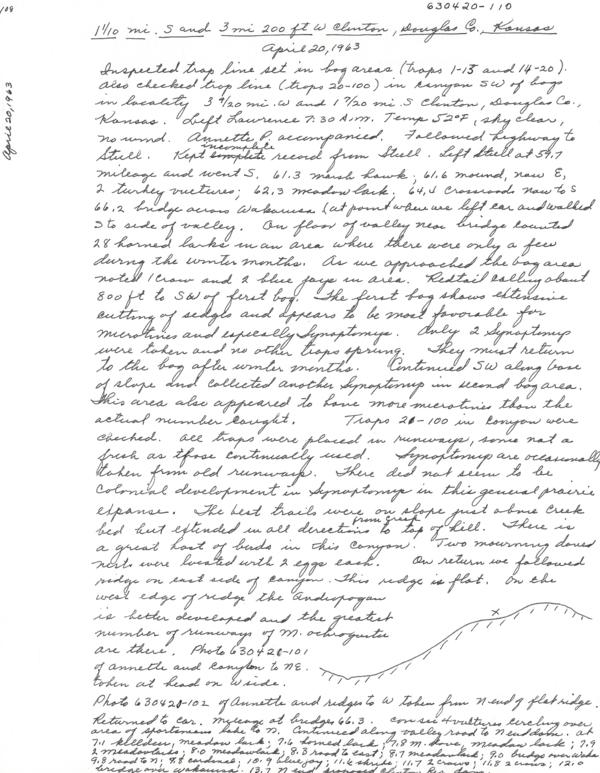 630420-110
109
1 1/10 mi. S and 3 mi 200 ft W Clinton, Douglas Co., Kansas
April 20, 1963
April 20, 1963
Inspected trap line set in bog areas (traps 1-13 and 14-20).
Also checked trap line (traps 20-100) in canyon SW of bogs
in locality 3 4/20 mi. W and 1 7/20 mi S Clinton, Douglas Co.,
Kansas. Left Lawrence 7:30 A.M. Temp 52°F, sky clear,
no wind. Annette P. accompanied. Followed highway to
Stull. Kept incomplete record from Stull. Left Stull at 59.7
mileage and went S. 61.3 marsh hawk; 61.6 mound, now E,
2 turkey vultures; 62.3 meadow lark. 64.5 Crossroads now to S
66.2 bridge across Wakarusa (at point where we left car and walked
S to side of valley. On floor of valley near bridge counted
28 horned larks in an area where there were only a few
during the winter months. As we approached the bog area
noted 1 crow and 2 blue jays in area. Redtail calling about
800 ft to SW of first bog. The first bog shows extensive
cutting of sedges and appears to be most favorable for
microtines and especially Synaptomys. Only 2 Synaptomys
were taken and no other traps sprung. They must return
to the bog after winter months. Continued SW along base
of slope and collected another Synaptomys in second bog area.
This area also appeared to have more microtines than the
actual number caught. Traps 20-100 in Canyon were
checked. All traps were placed in runways, some not a
fresh as those continually used. Synaptomys are occasionally
taken from old runways. There did not seem to be
Colonial development in Synaptomys in this general prairie
expanse. The best trails were on slope just above Creek
bed but extended in all directions from creek to top of hill. There is
a great host of buds in this Canyon. Two mourning doves
nests were located with 2 eggs each. On return we followed
ridge on east side of canyon. This ridge is flat. On the
west edge of ridge the Andropogon
is better developed and the greatest
number of runways of M. ochrogaster
are there. Photo 630420-101
of Annette and Canyon to NE.
taken at head on W side.
x
Photo 630420-102 of Annette and ridges to W taken from N end of flat ridge.
Returned to car. Mileage at bridge 66.3. Can see 4 vultures circling over
area of sportsmens lake to N. Continued along valley road to N end dam. at
7.1 killdeer, meadow lark; 7.6 horned lark; 7.8 m. dove, meadow lark; 7.9
2 meadowlarks; 8.0 meadowlark; 8.3 road to east; 8.7 meadowlark; 9.0 bridge over Waka
9.8 road to N; 9.8 cardinal; 10.9 blue jay; 11.6 shrike; 11.7 2 crows; 11.8 2 crows; 12.0
bridge over Wakarusa. 13.7 N end proposed Clinton Res. dam.